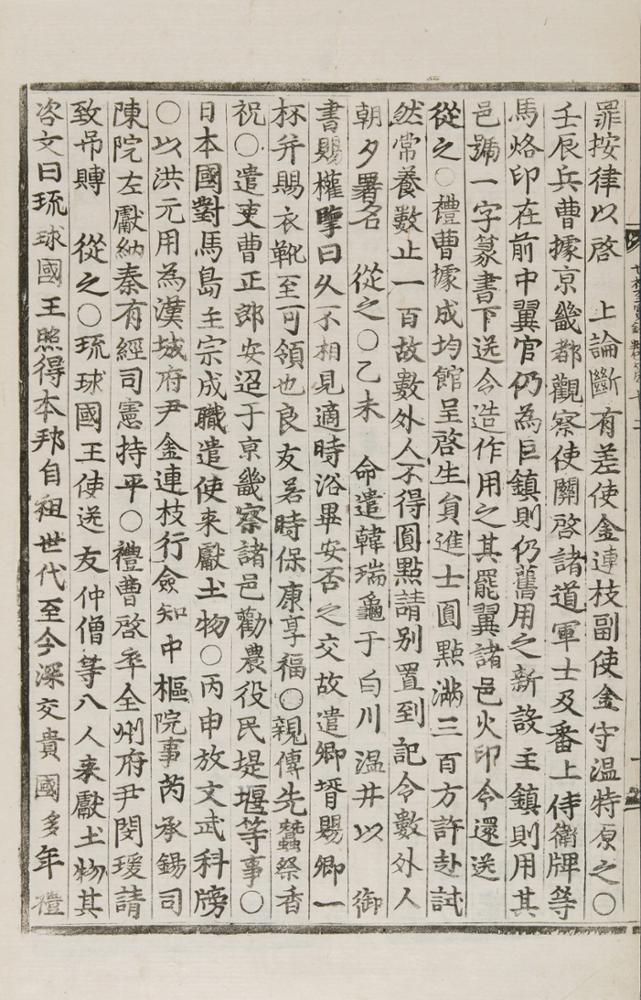 罪按律以啓 上論斷有差使金連枝副使金守溫特原之○
壬辰兵曹據京畿都觀察使關啓諸道軍士及番上侍衛牌等
馬烙印在前中翼官仍為巨鎮則仍舊用之新設主鎮則用其
邑號一字篆書下送令造作用之其罷翼諸邑火印令還送
從之○禮曹據成均館呈啓生員進士圓點滿三百方許赴試
然常養數止一百故數外人不得圓點請別置到記令數外人
朝夕署名 從之○乙未 命遣韓瑞龜于白川溫井以 御
書賜權擥曰久不相見適時浴畢安否之交故遣卿壻賜卿一
杯并賜衣靴至可領也良友若時保康享福○親傳先蠶祭香
祝○遣吏曹正郎安迢于京畿察諸邑勸農役民堤堰等事○
日本國對馬島主宗成職遣使來獻土物○丙申放文武科牓
○以洪元用為漢城府尹金連枝行僉知中樞院事芮承錫司
陳院左獻納秦有經司憲持平○禮曹啓卒全州府尹閔瑗請
致弔賻 從之○琉球國王使送友仲僧等八人來獻土物其
咨文曰琉球國王照得本邦自祖世代至今深交貴 國多年禮